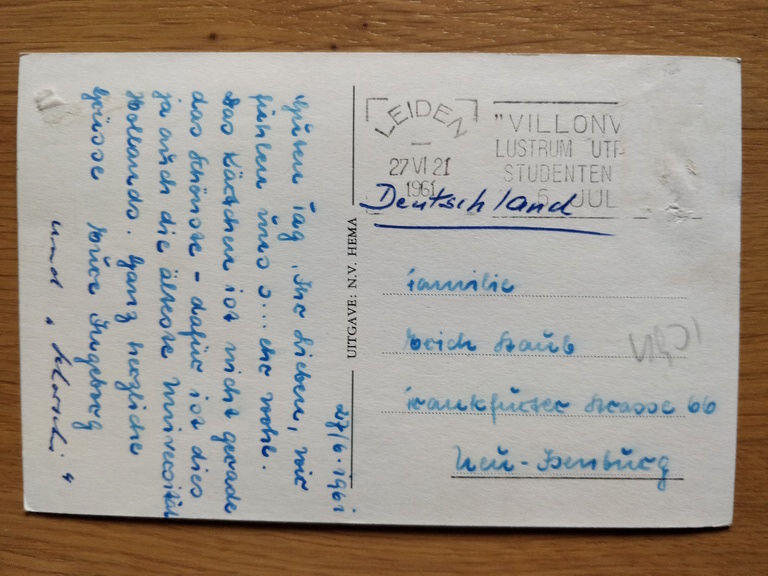 27/6.1961
Guten Tag, Ihr Lieben, wir
fühlen uns s...ehr wohl.
Das Kärtchen ist nicht gerade
das Schönste - dafür ist dies
ja auch die älteste Universität
Hollands. Ganz herzliche
Grüsse Eure Ingeburg
und
UITGAVE: N.V. HEMA
LEIDEN
27 VI 21
1961
"VILLONV
LUSTRUM UTR
STUDENTEN
6 JUL
Deutschland
Familie
Erich Staub
Frankfurter Strasse 66
Neu-Isenburg